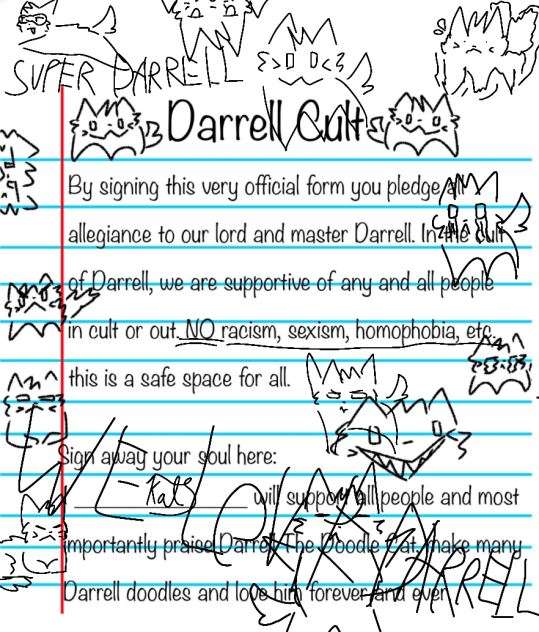 SUPER DARRELL
Darrell Cult
By signing this very official form you pledge all
allegiance to our lord and master Darrell. In the cult
of Darrell, we are supportive of any and all people
in cult or out. NO racism, sexism, homophobia, etc.
this is a safe space for all.
Sign away your soul here:
I -Kats will support all people and most
importantly praise Darrell The Doodle Cat, make many
Darrell doodles and love him forever and ever
DARRELL